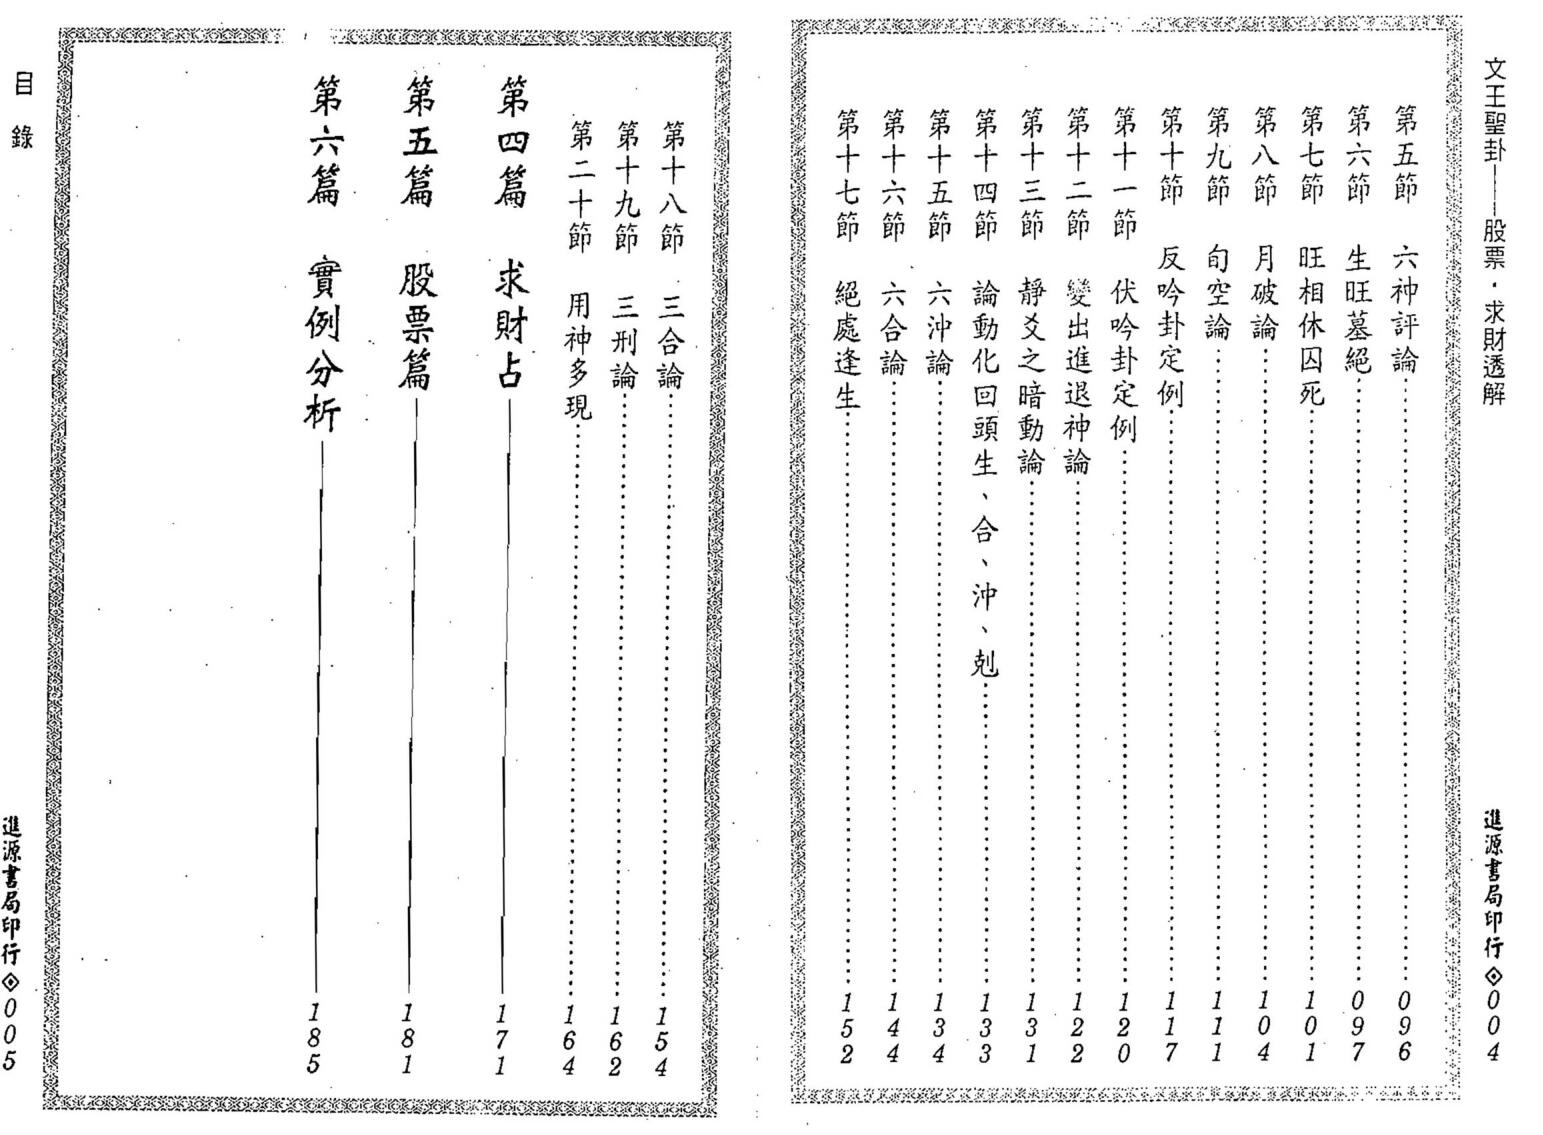 文王聖卦——股票·求財透解
第五節 六神評論 096
第六節 生旺墓絕 097
第七節 旺相休囚死 101
第八節 月破論 104
第九節 旬空論 111
第十節 反吟卦定例 117
第十一節 伏吟卦定例 120
第十二節 變出進退神論 122
第十三節 靜爻之暗動論 131
第十四節 論動化回頭生、合、沖、剋 133
第十五節 六沖論 134
第十六節 六合論 144
第十七節 絕處逢生 152
進源書局印行◈004
第十八節 三合論 154
第十九節 三刑論 162
第二十節 用神多現 164
第四篇 求財占 171
第五篇 股票篇 181
第六篇 實例分析 185
目錄
進源書局印行◈005